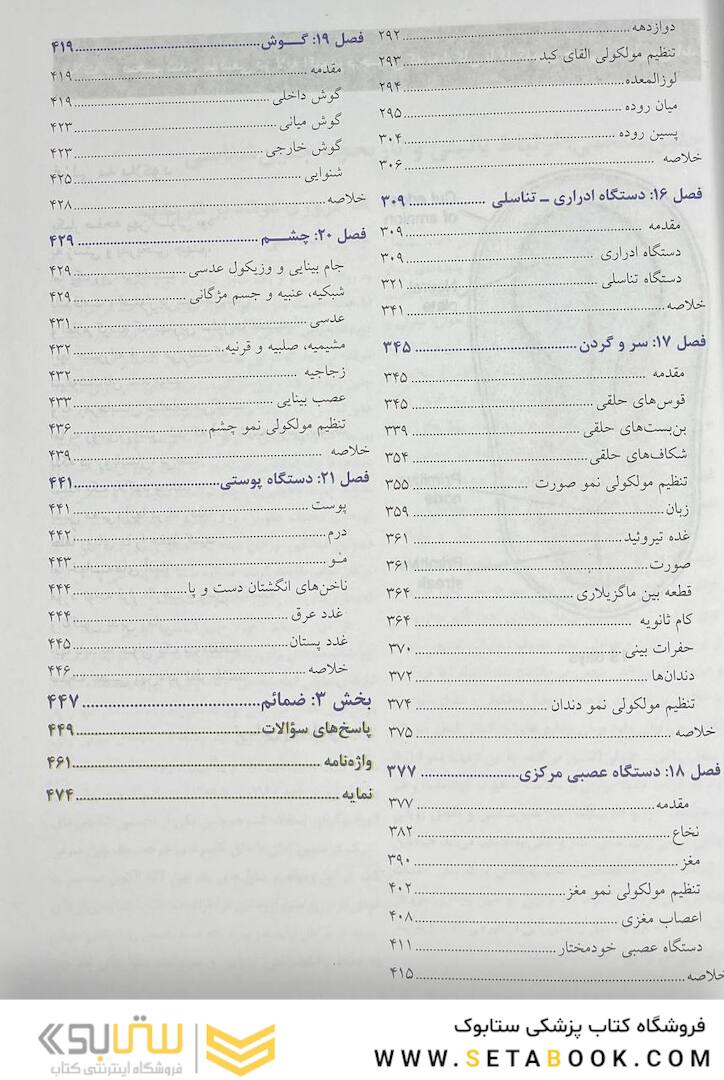 دوازدهه ۲۹۲
تنظیم مولکولی القای کبد ۲۹۳
لوزالمعده ۲۹۴
میان روده ۲۹۵
پسین روده ۳۰۴
خلاصه ۳۰۶
فصل ۱۶: دستگاه ادراری ـ تناسلی ۳۰۹
مقدمه ۳۰۹
دستگاه ادراری ۳۰۹
دستگاه تناسلی ۳۲۱
خلاصه ۳۴۱
فصل ۱۷: سر و گردن ۳۴۵
مقدمه ۳۴۵
قوس‌های حلقی ۳۴۵
بن‌بست‌های حلقی ۳۳۹
شکاف‌های حلقی ۳۵۴
تنظیم مولکولی نمو صورت ۳۵۵
زبان ۳۵۹
غده تیروئید ۳۶۱
صورت ۳۶۱
قطعه بین ماگزیلاری ۳۶۴
کام ثانویه ۳۶۴
حفرات بینی ۳۷۰
دندان‌ها ۳۷۲
تنظیم مولکولی نمو دندان ۳۷۴
خلاصه ۳۷۵
فصل ۱۸: دستگاه عصبی مرکزی ۳۷۷
مقدمه ۳۷۷
نخاع ۳۸۲
مغز ۳۹۰
تنظیم مولکولی نمو مغز ۴۰۲
اعصاب مغزی ۴۰۸
دستگاه عصبی خودمختار ۴۱۱
خلاصه ۴۱۵
فصل ۱۹: گـــوش ۴۱۹
مقدمه ۴۱۹
گوش داخلی ۴۱۹
گوش میانی ۴۲۳
گوش خارجی ۴۲۳
شنوایی ۴۲۵
خلاصه ۴۲۸
فصل ۲۰: چشـــم ۴۲۹
جام بینایی و وزیکول عدسی ۴۲۹
شبکیه، عنبیه و جسم مژگانی ۴۲۹
عدسی ۴۳۱
مشیمیه، صلبیه و قرنیه ۴۳۲
زجاجیه ۴۳۲
عصب بینایی ۴۳۳
تنظیم مولکولی نمو چشم ۴۳۶
خلاصه ۴۳۹
فصل ۲۱: دستگاه پوستی ۴۴۱
پوست ۴۴۱
درم ۴۴۲
مُو ۴۴۳
ناخن‌های انگشتان دست و پا ۴۴۴
غدد عرق ۴۴۴
غدد پستان ۴۴۵
خلاصه ۴۴۶
بخش ۳: ضمائم ۴۴۷
پاسخ‌های سؤالات ۴۴۹
واژه‌نامه ۴۶۱
نمایه ۴۷۴
فروشگاه کتاب پزشکی ستابوک
WWW.SETABOOK.COM
ستابوک
فروشگاه اینترنتی کتاب